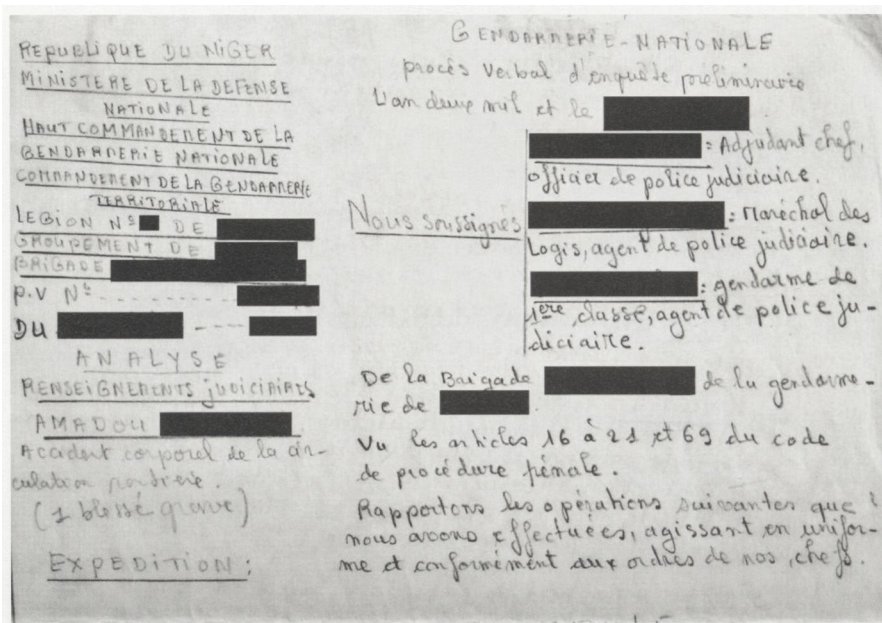 REPUBLIQUE DU NIGER
MINISTERE DE LA DEFENSE
NATIONALE
HAUT COMMANDEMENT DE LA
GENDARMERIE NATIONALE
COMMANDEMENT DE LA GENDARMERIE
TERRITORIALE
LEGION N° DE
GROUPEMENT DE
BRIGADE
P.V N°
DU
ANALYSE
RENSEIGNEMENTS judiciaires
AMADOU
Accident corporel de la cir-
culation routière.
(1 blessé grave)
EXPEDITION:
GENDARMERIE-NATIONALE
procès verbal d'enquête préliminaire
L'an deux mil et le
: Adjudant chef,
officier de police judiciaire.
Nous soussignés
: Maréchal des
Logis, agent de police judiciaire.
: gendarme de
1ère classe, agent de police ju-
diciaire.
De la Brigade de la gendarme-
rie de
Vu les articles 16 à 21 et 69 du code
de procédure pénale.
Rapportons les opérations suivantes que
nous avons effectuées, agissant en unifor-
me et conformément aux ordres de nos chefs.